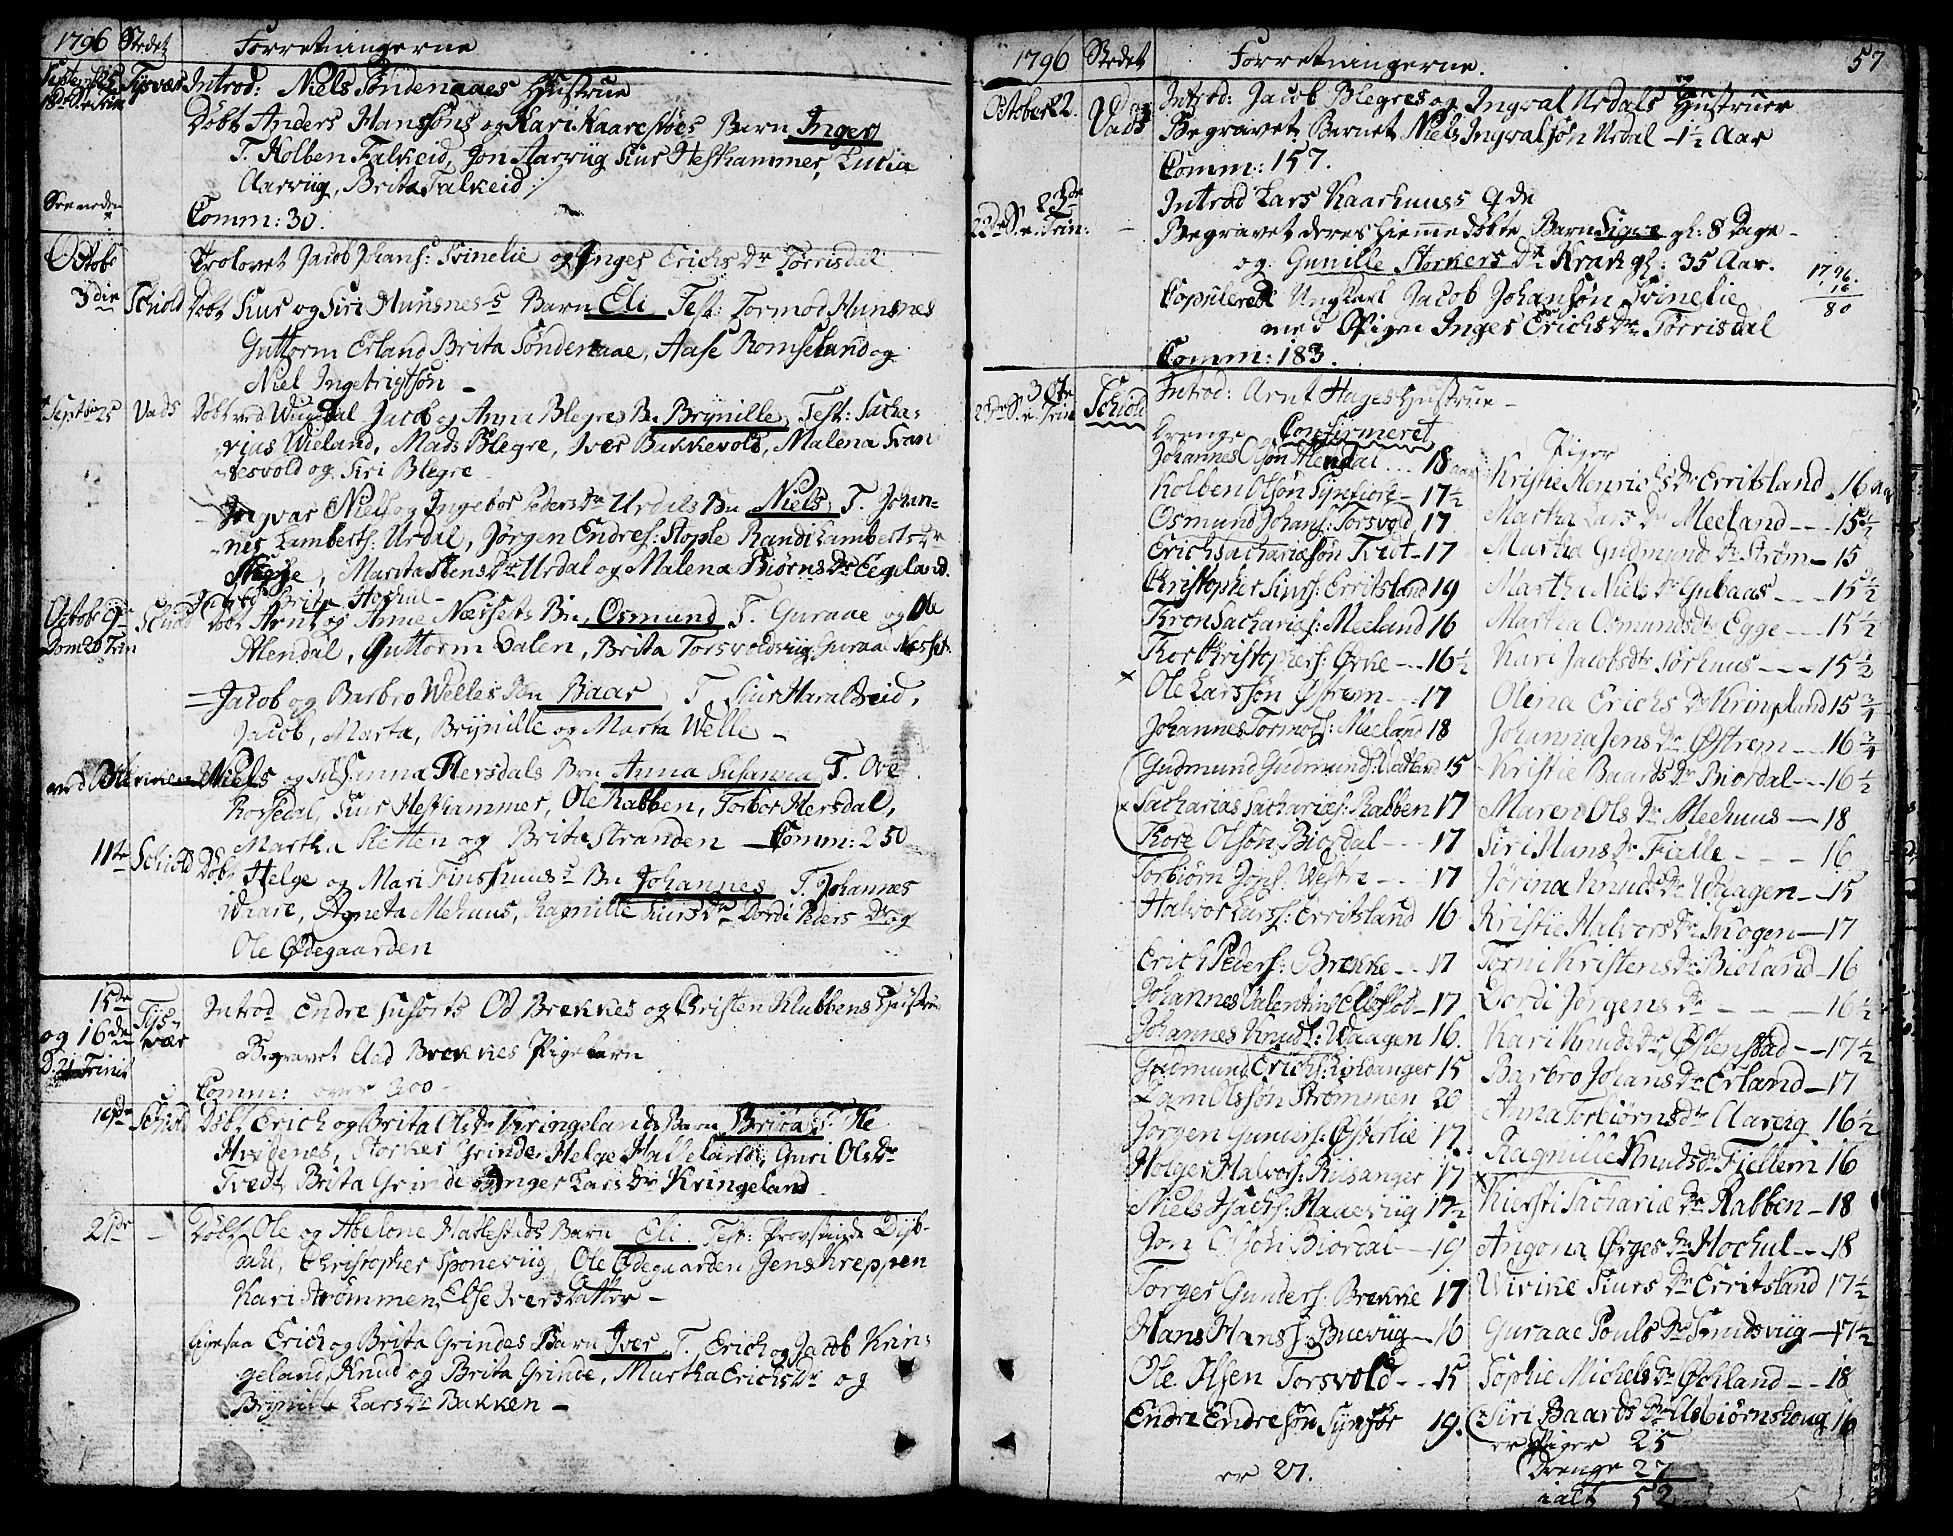 1796 Stedet Forretningerne
Septemb 25 Tysvær Introd: Niels Søndenaaes Hustrue
18de S. e. Trin
Døbt Anders Hanssøns og Kari Kaarestøes Barn Inger
T. Holben Falkeid, Jon Aarviig Siur Hesthammer, Lucia
Aarviig, Brita Falkeid
Comm: 30.
Octobr Trolovet Jacob Johans: Svinelie og Inger Erichs Dr Torrisdal
3die Schiold Døbt Siur og Siri Hunsnes's Barn Eli Test: Tormod Hunsnes
Guttorm Erland Brita Søndenaae, Aase Romseland og
Niel Ingebrigtsøn -
Septbr 25 Vads Døbt ved Jacob og Anna Blegres Bn Brynille Test: Sacha-
rias Wieland, Mads Blegre, Iver Bakkevold, Malena Svan
-desvold og Siri Blegre
Ingvar Niels og Ingebor Peders Dr Urdals Bn Niels T. Johan-
-nes Lamberts: Urdal, Jørgen Endres: Stople Randi Lamberts Dr
, Marita Stens Dr Urdal og Malena Biørns Dr Eegeland.
Introd: Brita Hochul -
Octobr 9de Schiold Døbt Arnt og Anne Næssets Bn Osmund T. Guraae og Ole
Dom 20 Trin
Alendal, Guttorm Dalen, Brita Torsvoldsviig Guraae Nesset
= Jacob og Barbro Welles Bn Baar T. Siur Haraldseid,
Jacob, Marta, Brynille og Marta Welle -
Niels og Susanna Hersdals Bn Anna Susanna T. Ove
Rossedal, Siur Hesthammer, Ole Rabben, Torbor Hersdal,
Martha Sletten og Brite Stranden - Comm: 250
11te Schiold Døbt Helge og Mari Finshuus's Bn Johannes T. Johannes
Waare, Agneta Mehuus, Ragnille Siurs Dr Dordi Peders Dr og
Ole Ødegaarden
15de
og 16de Tys- Introd Endre Susorts Od Brekkes og Christen Klubbens Hustrue
D. 21 Trinit vær
Begravet Aad Brekkes Pigebarn
Comm: over 300 -
19de Schiold Døbt Erich og Brita Ols Dr Kringelands Barn Brita T: Ole
Hvidenes, Storker Grinde, Helge Halleland, Guri Ols Dr
Tvedt, Brita Grinde og Inger Lars Dr Kringeland
21de - Døbt Ole og Abelone Harlestads Barn Eli. Test: Provstinde Dyb-
dahl, Christopher Sponeviig, Ole Ødegaarden, Jens Kreppen
Kari Strømmen, Else Iversdatter -
Ligesaa Erich og Brita Grindes Barn Iver T. Erich og Jacob Krin-
geland, Knud og Brita Grinde, Martha Erichs Dr og
Brynille Lars Dr Bakken -
1796 Stedet Forretningerne. 57
October 2. Vads Introd: Jacob Blegres og Ingval Urdals Hustruer
Begravet Barnet Niels Ingvalsøn Urdal - 1½ Aar
Comm: 157.
23de
22de S. e. Trin: - Introd Lars Kaarhuuss Qde
Begravet deres hiemmedøbte Barn Sigre gl: 8 Dage -
og Gunille Storkers Dr Krak gl: 35 Aar.
1796
16
80
Copulerede Ungkarl Jacob Johansøn Svinelie
med Pigen Inger Erichs Dr Torrisdal
Comm: 183.
30te
23de S. e. Trin Schiold Introd: Arnt Hages Hustrue -
Drenge Confirmeret Piger
Johannes Olsøn Alendal ... 18 aar
Kolben Olsøn Synfiore - 17½
Osmund Johans: Torsvold 17
Erich Sachariasøn Tvet - 17
Christopher Siurs: Erritsland 19
Thron Sacharies: Meeland 16
Thor Christophers: Ørke --- 16½
x Ole Larssøn Østrem --- 17
Johannes Tormods: Meeland 18
Gudmund Gudmunds: Vatland 15
x Sacharias Sacharies: Rabben 17
Thore Olsøn Biordal --- 17
Torbiørn Jons: Westre --- 17
Halvor Larss: Erritsland 16
Erich Peders: Brekke --- 17
Johannes Valentins: Eloflod - 17
Johannes Knuds: Waagen 16.
Gudmund Erichs: Lindanger 15
Lam Olssøn Strømmen 20
Jørgen Gunders: Østerlie 17.
Holger Halvors: Risanger 17
Niels Isachs: Haaeviig 17½
Jon Olsøn Biordal --- 19
Torger Gunders: Brekke 17
Hans Hanss: Bueviig - 16
Ole Olsen Torsvold --- 15
Endre Endresøn Synfiør 19.
er 27.
Kristie Henrichs Dr Erritsland - 16 Aar
Martha Lars Dr Meeland --- 15½
Martha Gudmunds Dr Strøm - 15
Martha Niels Dr Gubaas --- 15½
Martha Osmunds Dr Egge --- 15½
Kari Jacobs Dr Sørhuus --- 15½
Olena Erichs Dr Kringeland 15¾
Johanna Jens Dr Østrem --- 16¾
Kristie Baards Dr Biordal --- 16½
Maren Ols Dr Meehuus --- 18
Siri Hans Dr Fielle --- 16
Jorina Knuds Dr Waagen - 15
Kristie Halvors Dr Skogen - 17
Torni Kristens Dr Bieland - 16
Dordi Jørgens Dr --- 16½
Kari Knuds Dr Østenstad -- 17½
Barbro Johans Dr Erland - 17
Anna Torbiørns Dr Aarviig 16½
Ragnille Knuds Dr Fiellem 16
x Kiersti Sacharie Dr Rabben - 18
Angona Ørges Dr Hochul --- 18
Wivike Siurs Dr Erritsland 17½
Guraae Pouls Dr Smidsviig - 17½
Sophie Michels Dr Øchland --- 18
Siri Baards Dr Asbiørnshoug 16
er Piger 25
Drenge 27
ialt 52